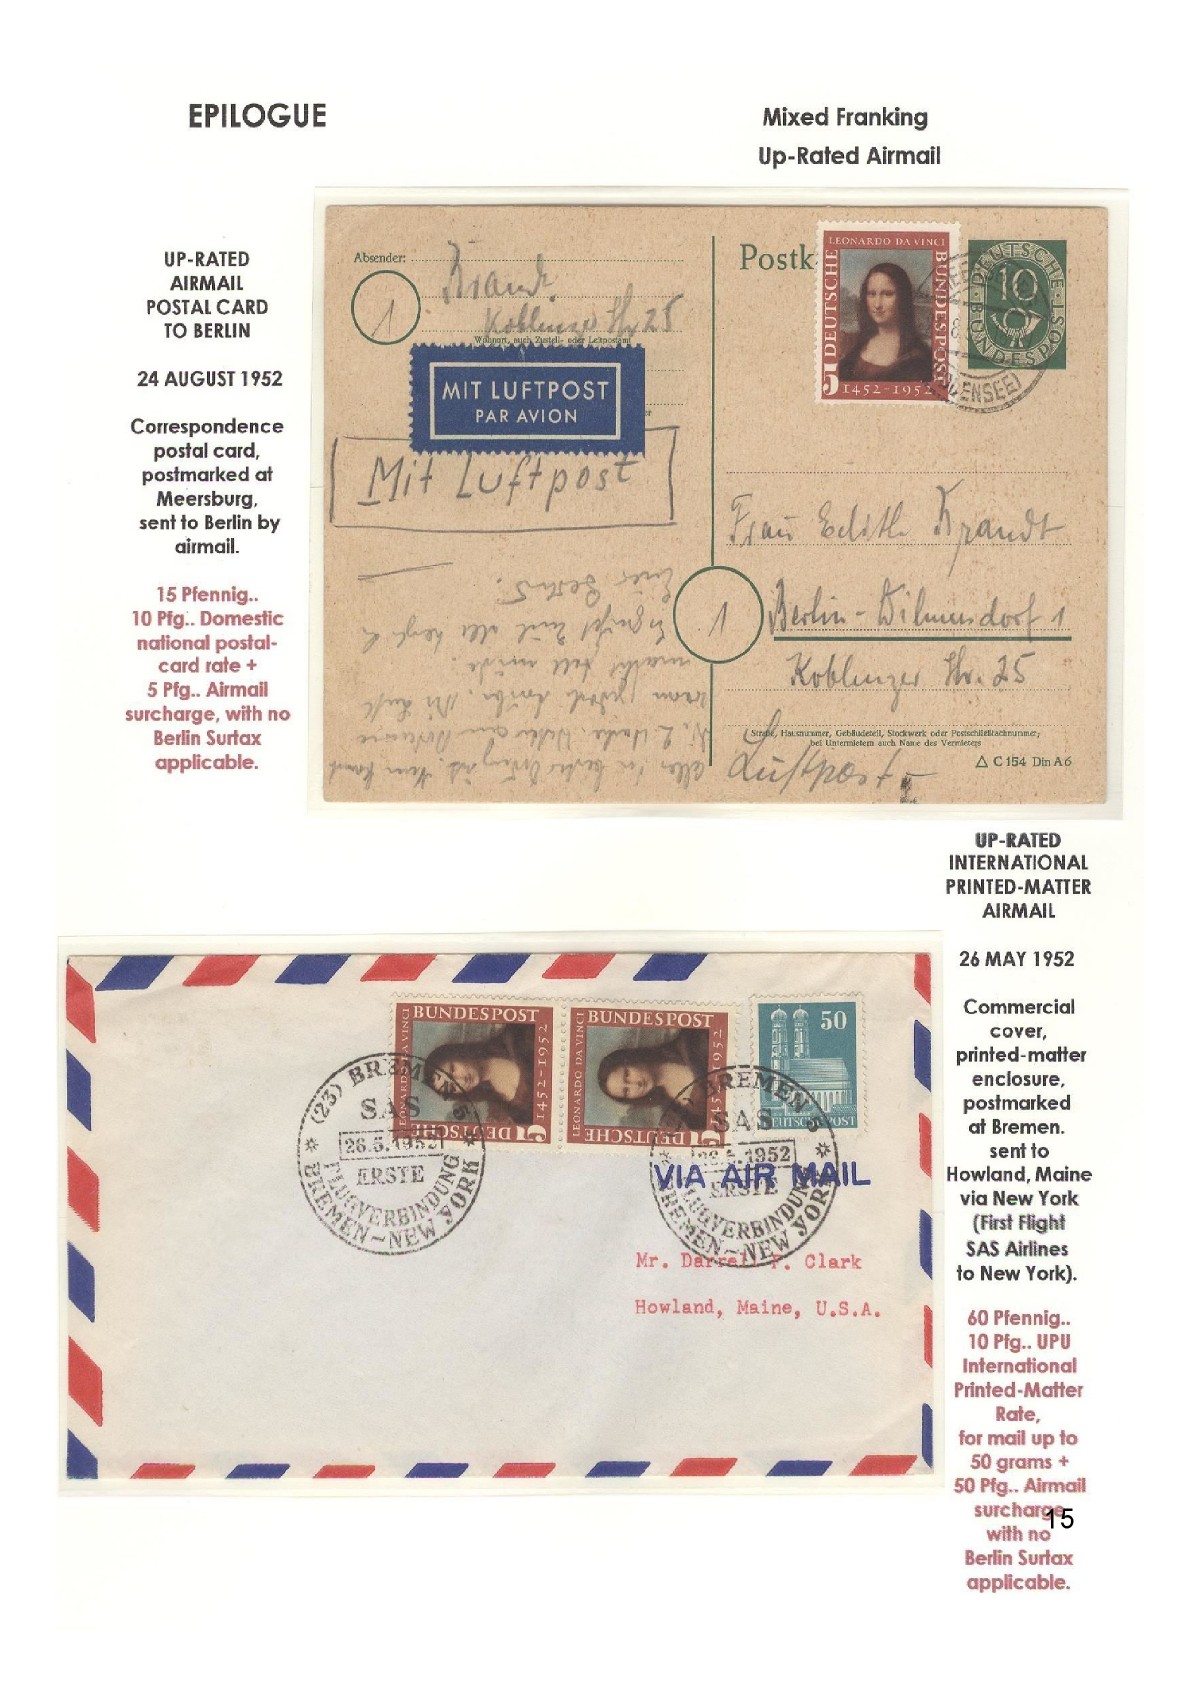 EPILOGUE
Mixed Franking
Up-Rated Airmail
UP-RATED
AIRMAIL
POSTAL CARD
TO BERLIN
24 AUGUST 1952
Correspondence
postal card,
postmarked at
Meersburg,
sent to Berlin by
airmail.
15 Pfennig..
10 Pfg.. Domestic
national postal-
card rate +
5 Pfg.. Airmail
surcharge, with no
Berlin Surtax
applicable.
Absender:
Brandt
Koblenzer Str 25
1
Wohnort, auch Zustell- oder Leitpostamt
MIT LUFTPOST
PAR AVION
Mit Luftpost
Postk
LEONARDO DA VINCI
DEUTSCHE
BUNDESPOST
5
1452-1952
DEUTSCHE
10
BUNDESPOST
Frau Edith Brandt
1
Berlin-Wilmersdorf 1
Koblenzer Str. 25
Straße, Hausnummer, Gebäudeteil, Stockwerk oder Postschließfachnummer;
bei Untermietern auch Name des Vermieters
Luftpost
△ C 154 Din A6
UP-RATED
INTERNATIONAL
PRINTED-MATTER
AIRMAIL
26 MAY 1952
Commercial
cover,
printed-matter
enclosure,
postmarked
at Bremen.
sent to
Howland, Maine
via New York
(First Flight
SAS Airlines
to New York).
60 Pfennig..
10 Pfg.. UPU
International
Printed-Matter
Rate,
for mail up to
50 grams +
50 Pfg.. Airmail
surcharge
with no
Berlin Surtax
applicable.
15
BUNDESPOST
LEONARDO DA VINCI
1452-1952
DEUTSCHE
5
BUNDESPOST
LEONARDO DA VINCI
1452-1952
DEUTSCHE
5
50
DEUTSCHE POST
(23) BREMEN 5
SAS
26.5.1952
ERSTE
FLUGVERBINDUNG
BREMEN-NEW YORK
BREMEN 5
SAS
26.5.1952
ERSTE
FLUGVERBINDUNG
BREMEN-NEW YORK
VIA AIR MAIL
Mr. Darrell P. Clark
Howland, Maine, U.S.A.